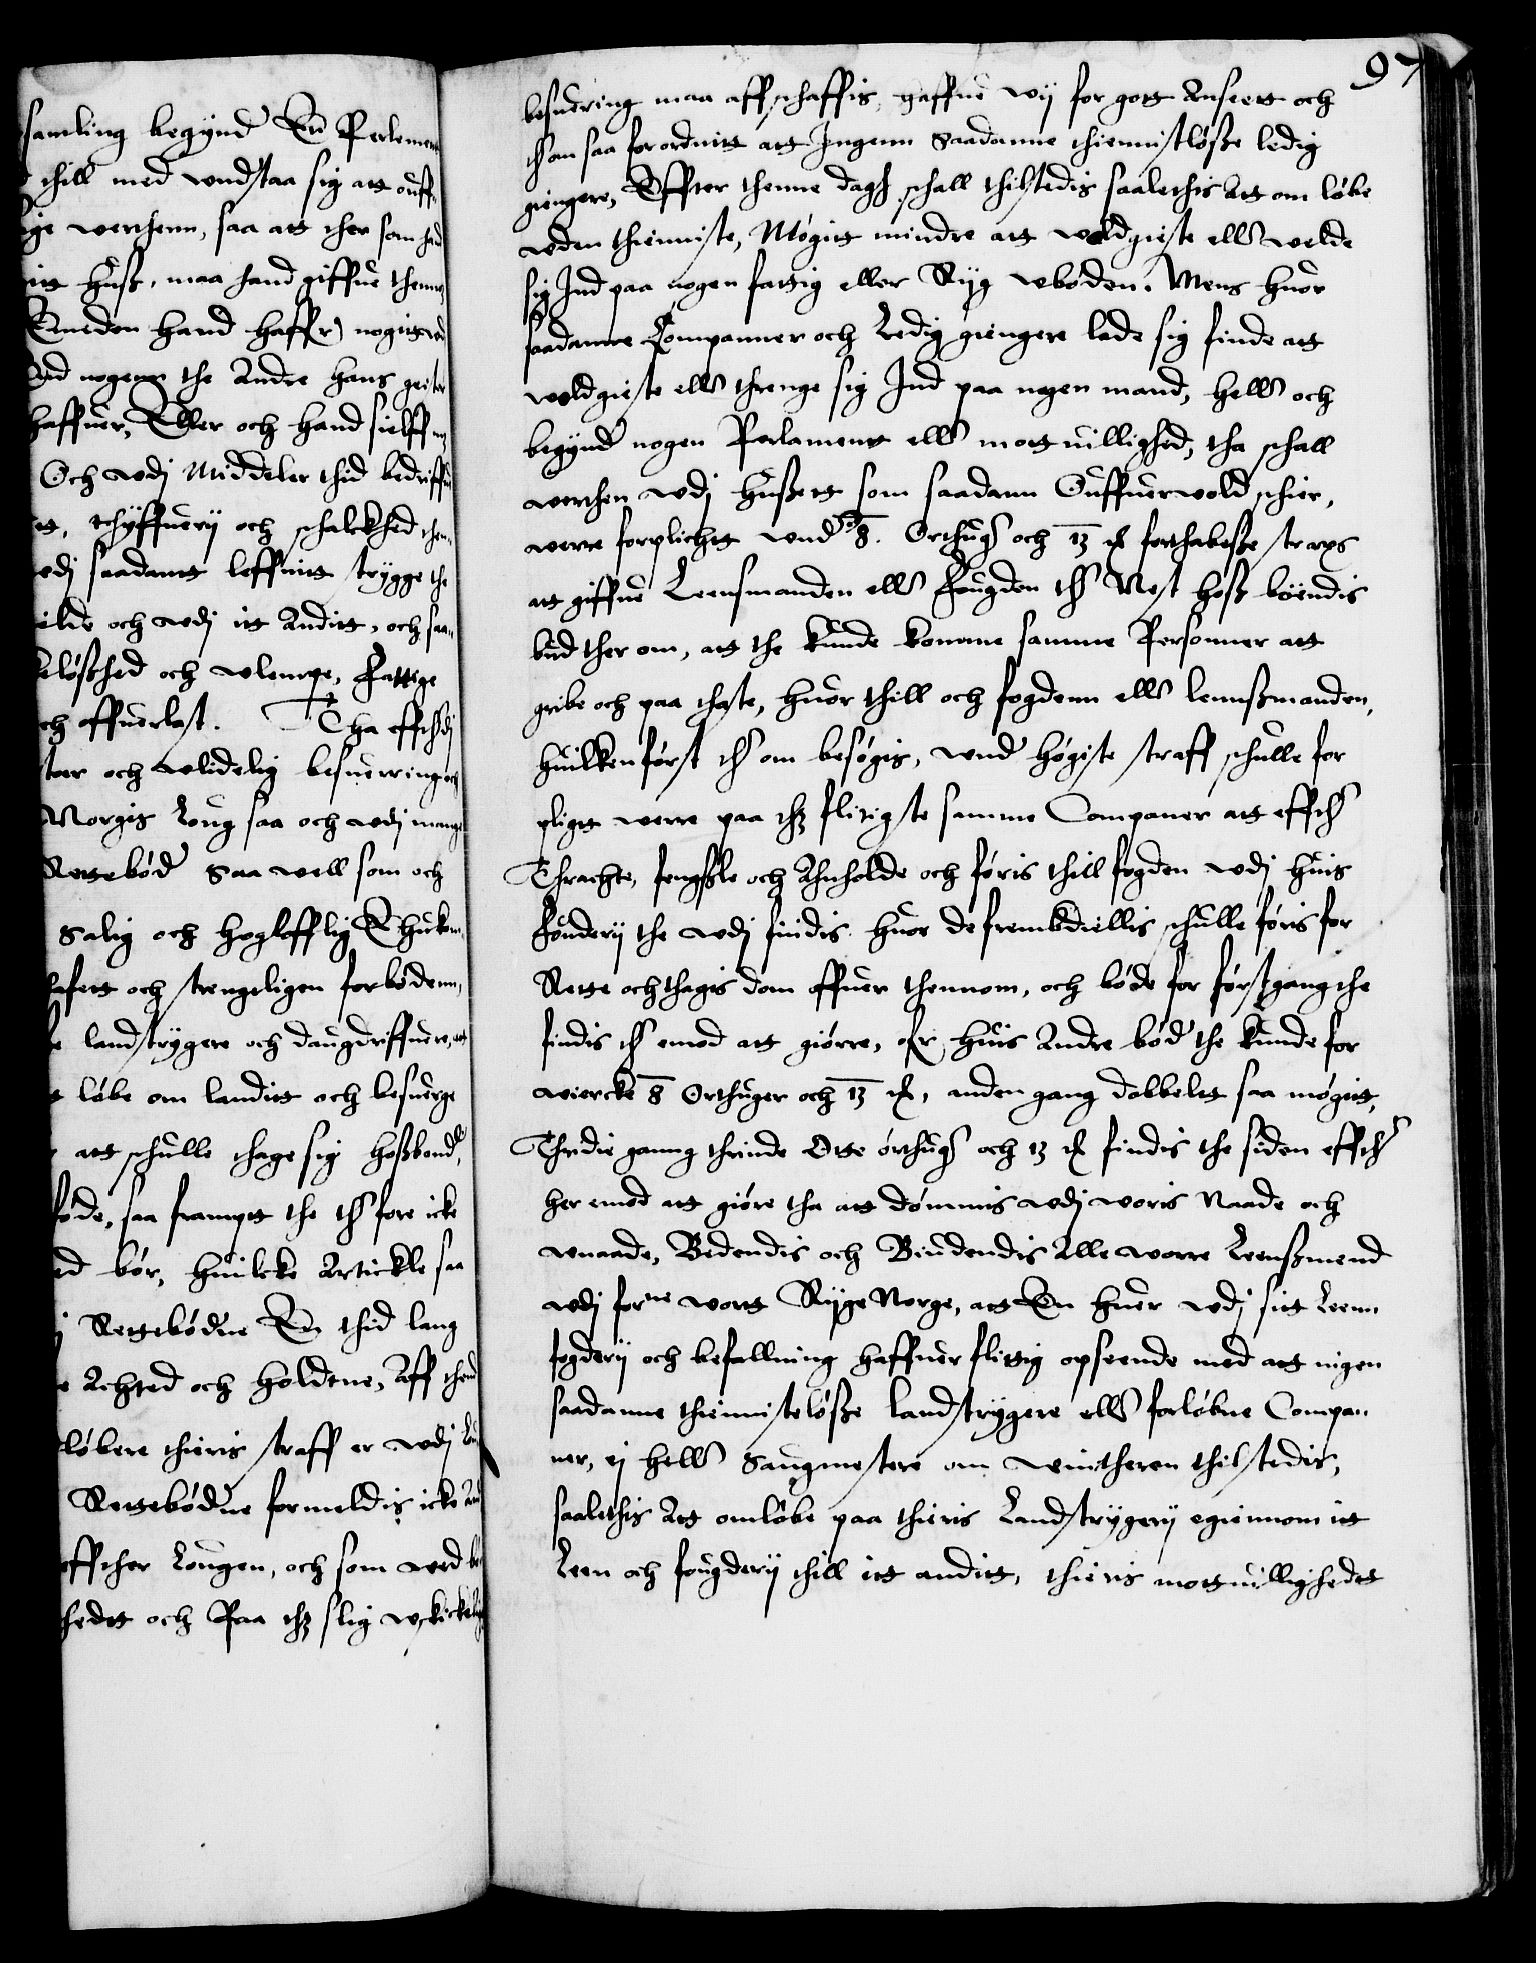 samling begynd En Perlement
thill med wnd staa sig att ouff
ige werthenn, saa att ther som hand
itt huss, maa hand giffue thennom
Emeden hand haffr nogitt
nogenn the Andre hans geste
haffuer, Eller och hand sielff
Och wdj Middeler thid bedriffue
thyffuerij och schalckhed then
wdj saadant leffnitt trygge the
och wdj itt Anditt, och saa
løsshed och wlempe, Fattige
och offuerlast. Tha effthdj
och wlidelig besuerring och
Norgis Loug saa och wdj mange
Rettebød saa well som och
Salig och hogloffligEhukom
och strengeligen forbødenn,
landstrygere och daugdriffuere, att
løbe om landitt och besuerge
att schulle thage sig hossbond,
føde, saa frampt the thr fore icke
bør, huilcke Artickle saa
Rettebødne En thid lang
Achted och holdene, Aff thend
løbere thieris straff er wdj
Rettebødne formeldis icke
effther Lougen, och som wed
hedt och Paa thz slig wskickelig
97
besuering maa affschaffis, haffue wij for gott Anseett och
thr om saa forordnitt att Ingenn Saadanne thiennistløsse ledig
giengere, Effter thenne dagh schall thilstedis saalethis Att om løbe
wden thienniste, Møgitt mindre att woldgieste ellr welde
sig Ind paa nogen fattig eller Ryg wbøden. Mens huor
saadanne Companner och Ledig giengere lade sig finde att
woldgieste ellr threnge sig Ind paa nogen mand, hellr och
begynd nogen Parlament ellr mottuillighed, tha schall
werthen wdj hussett som saadann Ouffueruold schier,
werre forplichtt wnd 8. Orthugr och 13 ɱ forthabelsse straxs
att giffue Leensmanden ellr Fougden thr Nest hoss boendis
bud ther om, att the kunde komme samme Personner att
gribe och paa thaste, huor thill och fogdenn ellr lennssmanden,
huilken først thr om besøgis, wnd høgiste straff schulle for
pligtt werre paa thz flitigste samme Companer att effthr
Thrachte, fengssle och Anholde och føris thill fogden wdj huis
Fouderij the wdj findis. huor de frembdiellis schulle føris for
Rette och thagis dom offuer thennom, och bøde for førstgang the
findis thr emod att giørre, for huis Andre bød the kunde for
wiercke 8 Orthuger och 13 ɱ, anden gang dobbelt saa møgitt,
Thridie ganng thrinde Otte ørthugr och 13 ɱ findis the siden effthr
her emod att giøre tha att dømmis wdj woris Naade och
wnaade, Bedendis och Biudendis Alle worre Leenssmend
wdj forne wortt Ryge Norge, att En huer wdj sitt Leenn
fogderij och befallning haffuer flittig opseende med att ingen
saadanne thiennisteløsse landstrygere ellr forløbne Compan
ner, ej hellr Saugmestere om wintheren thilstedis,
saalethis Att omløbe paa thieris Landstrygerij egiennom itt
Leen och fougderij thill itt anditt, thieris mottuillighedtt